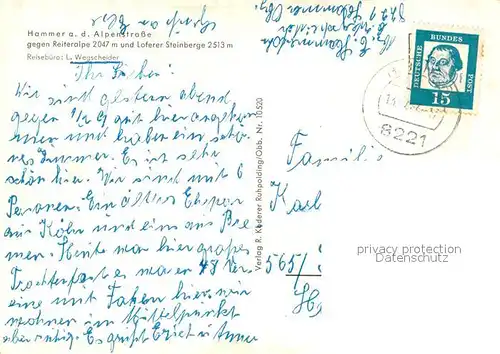 Hammer a. d. Alpenstraße
gegen Reiteralpe 2047 m und Loferer Steinberge 2513 m
Reisebüro: L. Wegscheider
Ihr Lieben!
Wir sind gestern abend
gegen 1/2 9 Uhr hier angekom
men und haben ein schö-
nes Zimmer. Es ist sehr
schön hier. Wir sind mit 6
Personen. Ein älteres Ehepaar
aus Köln und eins aus Bre
men. Heute war hier großes
Trachtenfest, es waren 48 Ver
eine mit Fahnen hier, wir
wohnen im Mittelpunkt
aber ruhig. Es grüßt Erich u. Anna
Verlag R. Kiederer Ruhpolding/Obb. Nr. 10520
DEUTSCHE BUNDESPOST
15
8221
Familie
Karl
565/
privacy protection
Datenschutz